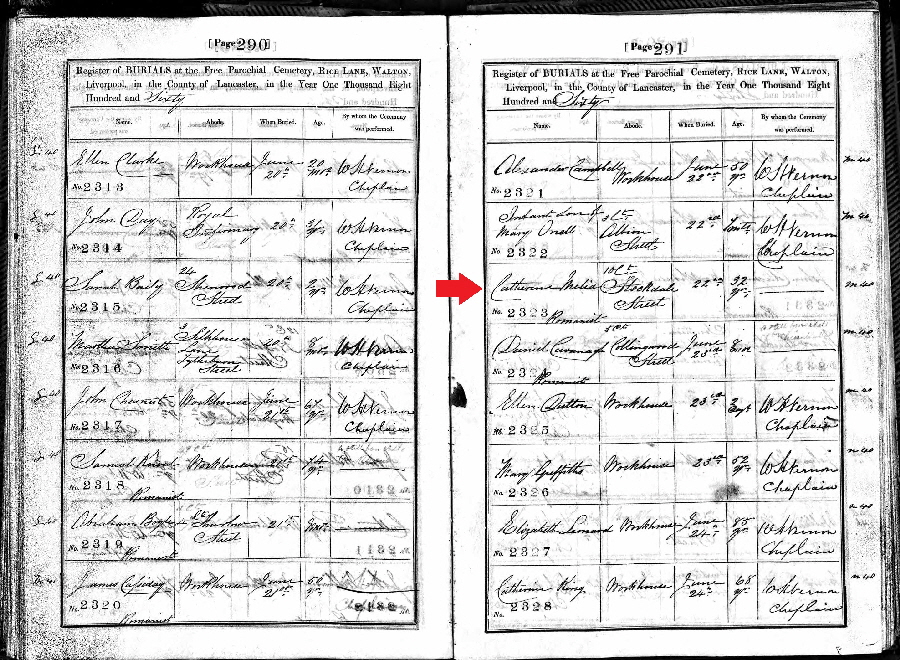 [Page 290]
Register of BURIALS at the Free Parochial Cemetery, RICE LANE, WALTON,
Liverpool, in the County of Lancaster, in the Year One Thousand Eight
Hundred and Sixty
Name. Abode. When Buried. Age. By whom the Ceremony was performed.
Ellen Clarke Workhouse June 20th 20 mos W H Vernon Chaplain
No. 2313
John Day Royal Infirmary 20th W H Vernon Chaplain
No. 2314
Samuel Baily 24 Sherwood Street 20th 2 yrs W H Vernon Chaplain
No. 2315
Martha Smith 20th W H Vernon Chaplain
No. 2316
John Workhouse June 21st 67 yrs W H Vernon Chaplain
No. 2317
Samuel Workhouse 74 yrs
No. 2318
Romanist
Abraham Street 21st
No. 2319
Romanist
James Workhouse June 21st 50 yrs
No. 2320
Romanist
[Page 291]
Register of BURIALS at the Free Parochial Cemetery, RICE LANE, WALTON,
Liverpool, in the County of Lancaster, in the Year One Thousand Eight
Hundred and Sixty
Name. Abode. When Buried. Age. By whom the Ceremony was performed.
Alexander Campbell Workhouse June 22nd 50 yrs W H Vernon Chaplain
No. 2321
Infant Son of Mary 3 Ct Albion Street 22nd W H Vernon Chaplain
No. 2322
Catherine Melia 10 Ct Stockdale Street 22nd 32 yrs
No. 2323 Romanist
Daniel Cavanagh Collingwood Street June 23rd
No. 232
Romanist
Ellen Dutton Workhouse 23rd 2 W H Vernon Chaplain
No. 2325
Mary Griffiths Workhouse 23rd 52 yrs W H Vernon Chaplain
No. 2326
Elizabeth Leonard Workhouse June 24th 85 yrs W H Vernon Chaplain
No. 2327
Catherine King Workhouse June 24th 68 yrs W H Vernon Chaplain
No. 2328